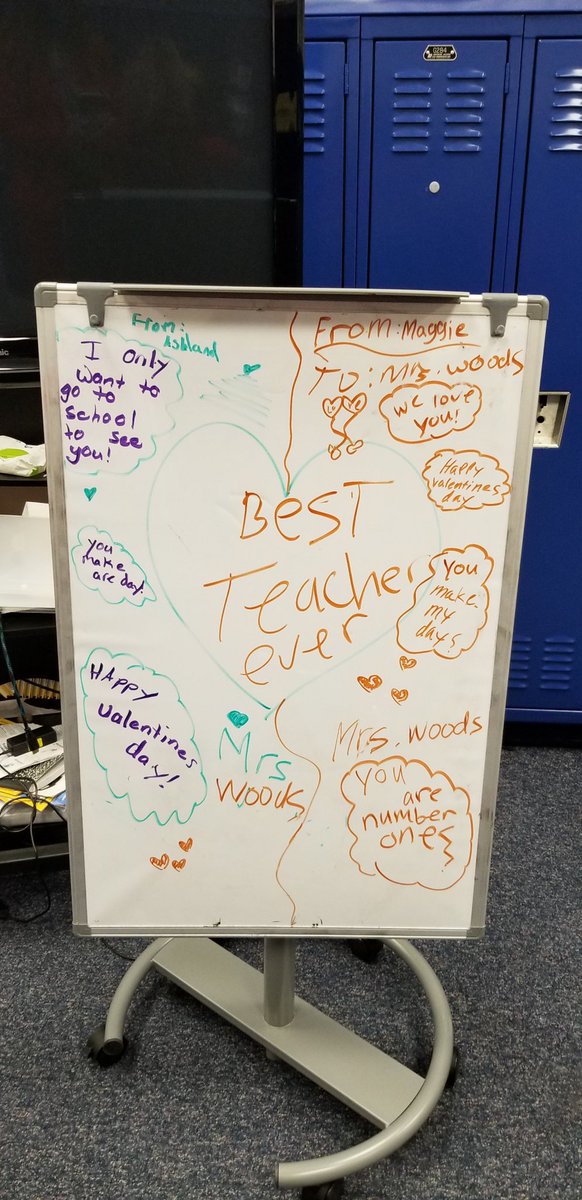 G284
From:
Ashland
I only
want to
go to
school
to see
you!
you
make
are day!
HAPPY
valentines
day!
Best
Teacher
ever
Mrs
woods
From: Maggie
To: Mrs. woods
we love
you!
Happy
valentines
day
you
make
my
days!
Mrs. woods
you
are
number
ones